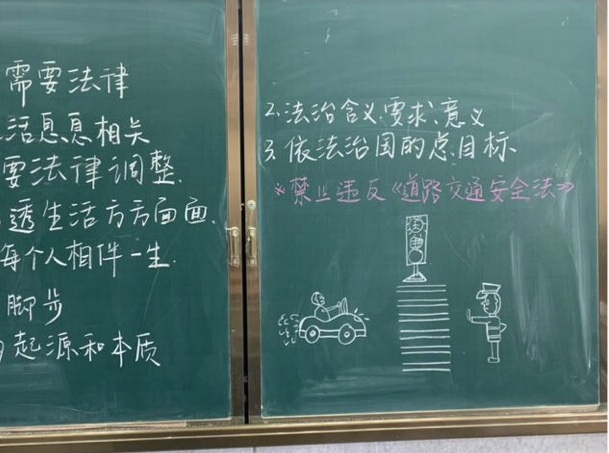 需要法律
活息息相关
要法律调整.
透生活方方面面.
每个人相伴一生.
脚步
起源和本质
2.法治含义.要求.意义
3.依法治国的总目标
*禁止违反《道路交通安全法》